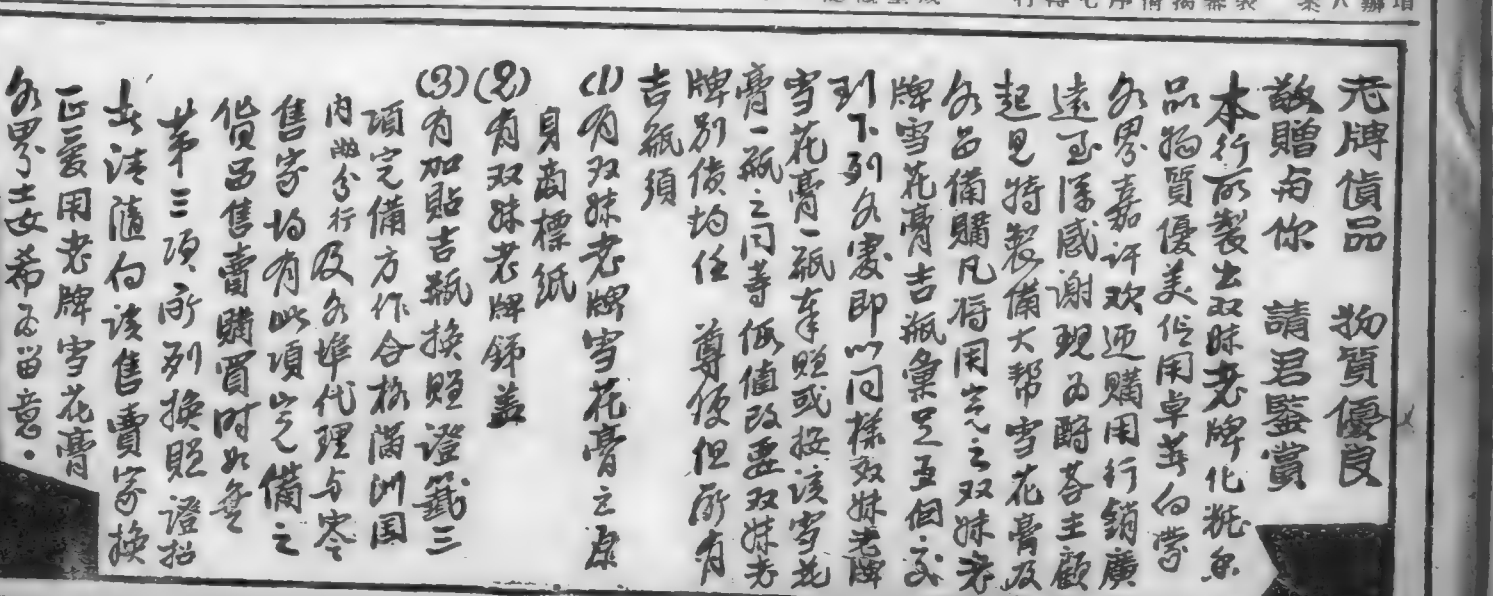 老牌貨品　物質優良
敬贈與你　請君鑒賞
本行所製出双妹老牌化粧各
品物質優美作用卓著向蒙
各界嘉許欢迎購用行銷廣
遠至深感谢現为酧荅主顧
起見特製備大帮雪花膏及
各品備購凡将用完之双妹老
牌雪花膏吉瓶彙足五個交
到下列各處即以同樣双妹老牌
雪花膏一瓶奉贈或按该雪花
膏一瓶之同等價值改要双妹老
牌别货均任　尊便但所有
吉瓶須
(1)有双妹老牌雪花膏之原
身商標紙
(2)有双妹老牌锑盖
(3)有加貼吉瓶换贈證籤三
項完備方作合格滿洲国
内敝分行及各埠代理与零
售家均有此項完備之
货品售賣購買时如無
第三項所列换贈證招
者請隨向该售賣家换
正爰用老牌雪花膏
各界士女希为留意.